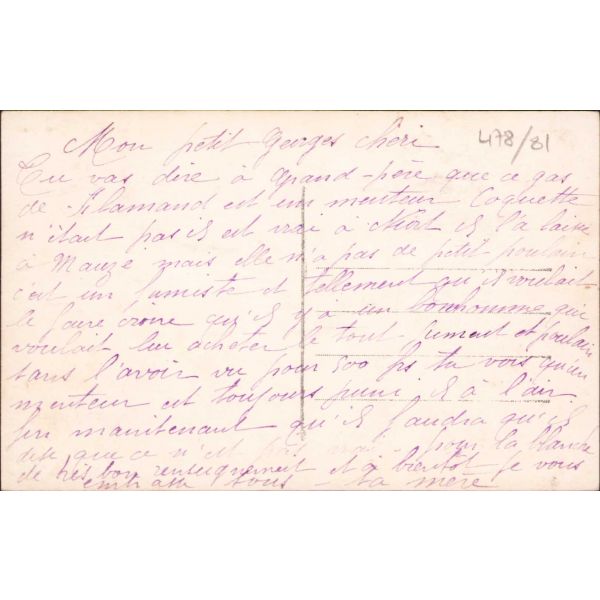 478/81
Mon petit Georges chéri
Tu vas dire à grand-père que ce gas
de Flamand est un menteur Coquette
n'était pas il est vrai à Niort il l'a laisse
à Mauzé mais elle n'a pas de petit poulain
c'est un et tellement qu'il voulait
le faire croire qu'il y a un bonhomme qui
voulait lui acheter le tout jument et poulain
sans l'avoir vu pour 500 frs tu vois qu'un
menteur est toujours puni il à l'air
fin maintenant qu'il faudra qu'il
dise que ce n'est pas vrai - pour la blanche
de très bon renseignement et à bientôt je vous
embrasse tous - ta mère